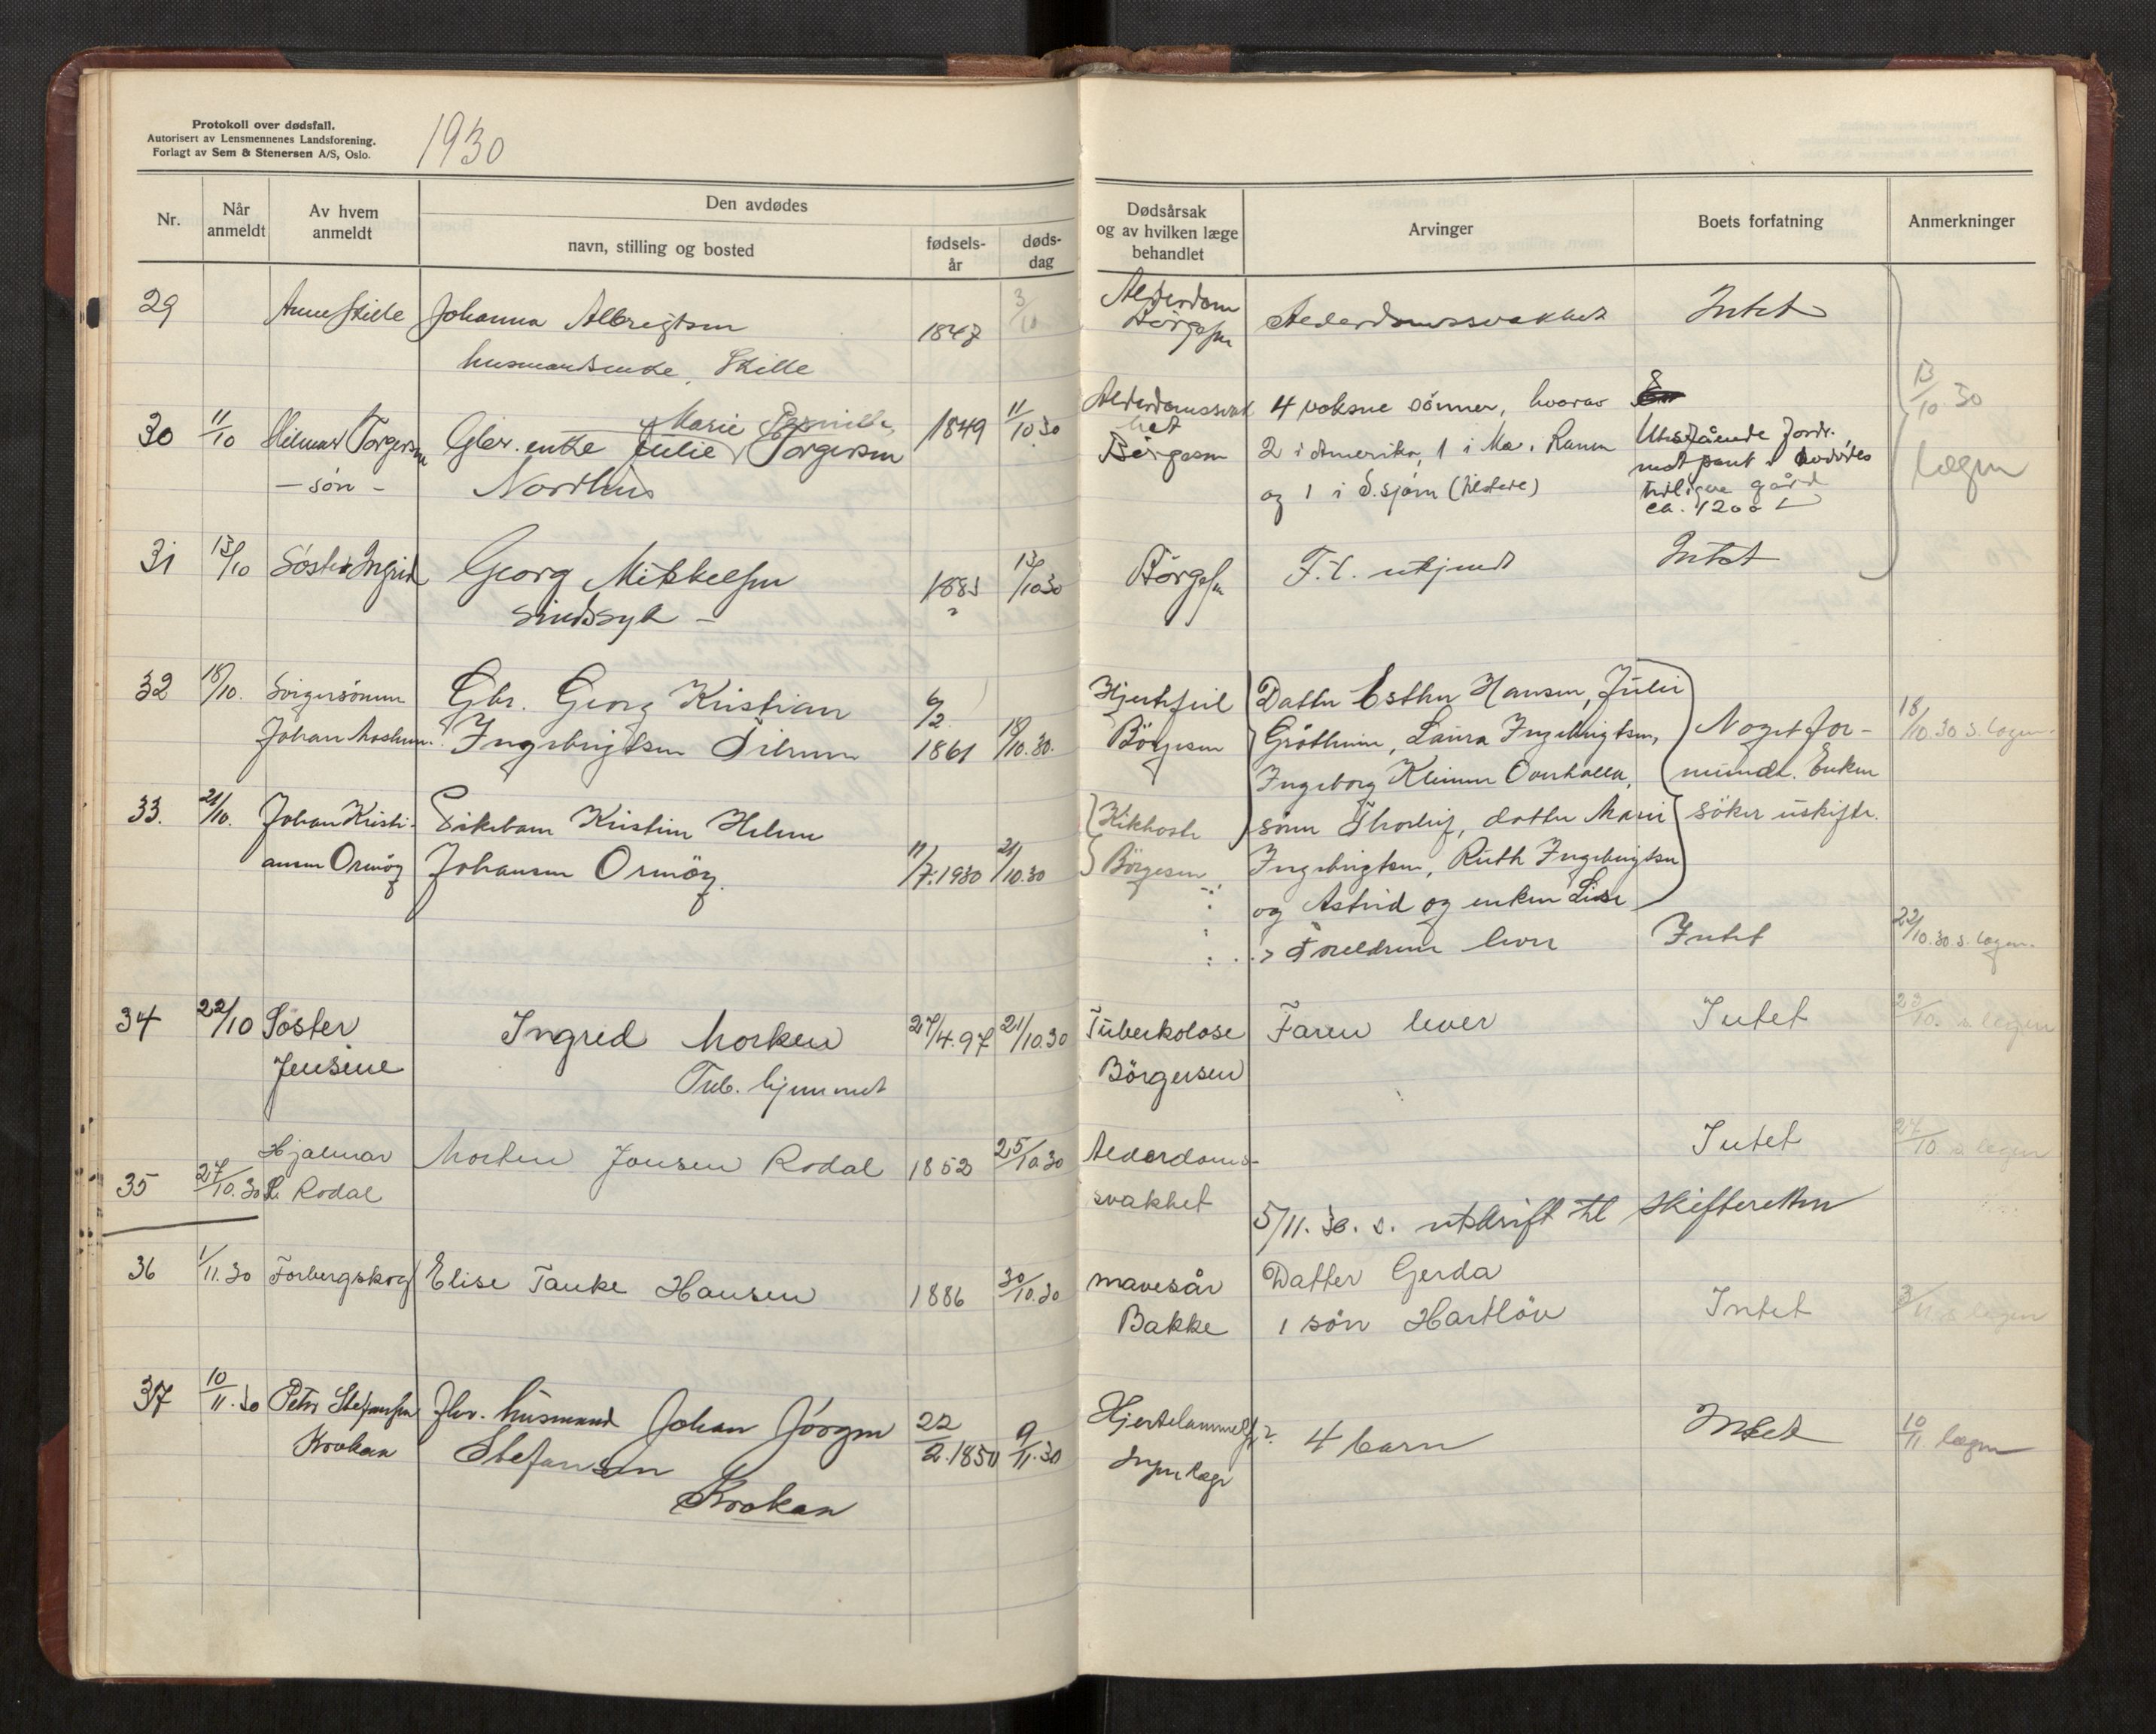 Protokoll over dødsfall.
Autorisert av Lensmennenes Landsforening.
Forlagt av Sem & Stenersen A/S, Oslo.
1930
Nr.
Når anmeldt
Av hvem anmeldt
Den avdødes
navn, stilling og bosted
fødsels-år
døds-dag
Dødsårsak og av hvilken læge behandlet
Arvinger
Boets forfatning
Anmerkninger
29 Anne Skille Johanna Albrigtsen 1847 3/10 Alderdom Alderdomssvakhet Intet
husmandsenke, Skille Börgesen
30 11/10 Hilmar Torgersen Gbr. enke Julie Marie Pernille Torgersen 1849 11/10.30 Alderdomssvakhet 4 voksne sönner, hvorav
- sön - Northus Börgesen 2 i Amerika, 1 i Mo i Ranen Utestående fordr.
og 1 i S.sjöen mot pant i avdödes
tidligere gård
ca. 1200
13/10 30
lægen
31 13/10 Söster Ingrid Georg Mikkelsen 1883 13/10 30 Börgesen F. t. ukjendt Intet
sindssyk - ?
32 18/10. Svigersönnen Gbr. Georg Kristian 6/2 Hjertefeil Datter Esther Hansen, Julie
Johan Ingebrigtsen 1861 18/10.30. Börgesen Gröttheim, Laura Ingebrigtsen, Noget for- 18/10.30 s. legen.
Ingeborg Overhalla, muende. Enken
33. 21/10. Johan Kristi- Pikebarn Kristine Helene Kikhoste sönn Thorleif, datter Marie söker uskifte.
ansen Ormöy Johansen Ormöy. 11/7.1930 21/10.30 Börgesen Ingebrigtsen, Ruth Ingebrigtsen
og Astrid og enken Lise
Foreldrene lever Intet 22/10.30 s. legen.
34 22/10 Söster Ingrid Morken 27/4.97 21/10.30 Tuberkolose Faren lever Intet 23/10. s. legen
Jensine Tub. hjemmet Börgersen
35 27/10.30 Hjalmar Morten Jonsen Rodal 1852 25/10 30 Alderdoms- Intet 27/10 s legen
R. Rodal svakhet
5/11.30. s. utskrift til Skifteretten
36 1/11.30 Forbergskog Elise Tanke Hansen 1886 30/10.30 mavesår Datter Gerda
Bakke 1 sön Hartlöv Intet 3/11 s legen
37 10/11.30 Petter Stefansen fhv. husmand Johan Jörgen 22/2.1850 9/11.30 Hjertelammelse? 4 barn Intet 10/11. lægen
Krokan Stefansen Ingen læge
Krokan